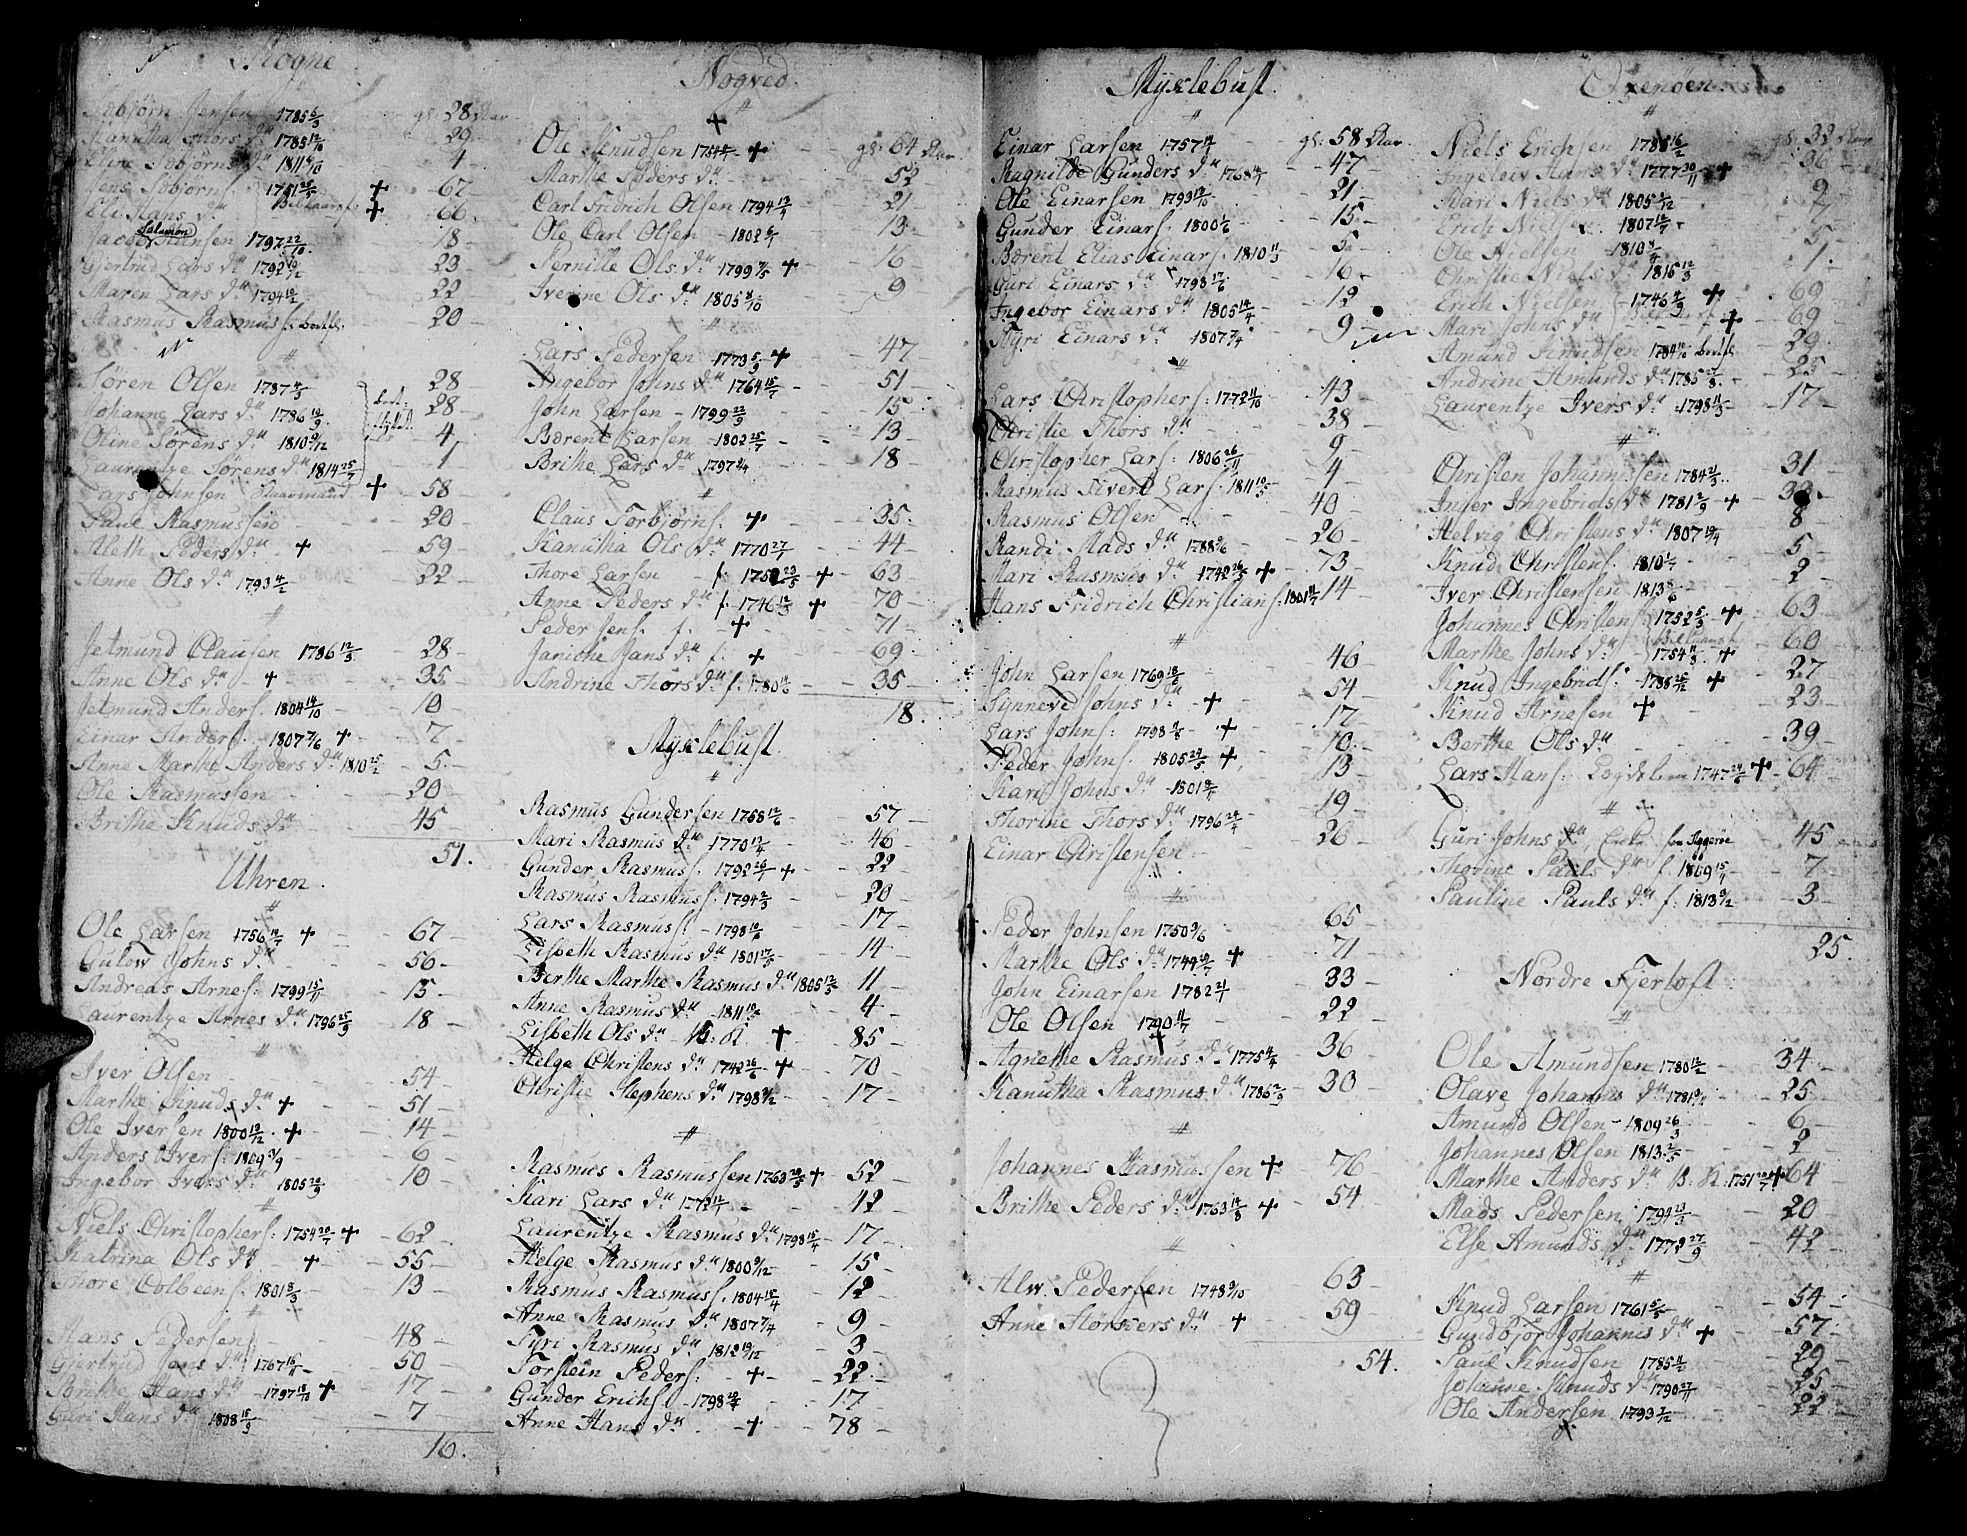 Rogne
#
Jensen 1785 6/3 gl: 28 Aar
Kanutha Thors dr 1785 12/10 29
Eline dr 1811 4
Jens 1751 + 67
Eli Hans dr + 66
Jacob Salamon Hansen 1797 22/10 18
Giertrud Lars dr 1792 23
Maren Lars dr 1794 22
Rasmus Rasmuss: 20
#
Søren Olsen 1787 4/3 28
Johanne Lars dr 1786 19/9 28
Oline Sørens dr 1810 9/12 4
Laurentze Sørens dr 1814 25/7 1
Lars Johnsen + 58
Paul Rasmussen 20
Aleth Peders dr + 59
Anne Ols dr 1793 4/2 22
#
Jetmund Clausen 1786 12/3 28
Anne Ols dr + 35
Jetmund Anders: 1804 14/10 10
Einar Anders: 1807 7/6 + 7
Anne Marthe Anders dr 1810 25/2 5
Ole Rasmussen 20
Brithe Knuds dr 45
51.
Uhren.
#
Ole Larsen 1756 + 67
Gulow Johns dr 56
Andreas Arnes: 1799 15/11 15
Laurentze Arnes dr 1796 25/9 18
#
Iver Olsen 54
Marthe Knuds dr + 51
Ole Iversen 1800 + 14
Anders Ivers: 1809 6
Ingebor Ivers dr 1805 10
#
Niels Christophers: 1754 + 62
Katrina Ols dr + 55
Thore Colbeens: 1801 8/3 13
#
Hans Pedersen 48
Giertrud Jens dr 1767 50
Brithe Hans dr 1797 + 17
Guri Hans dr 1808 15/3 7
16.
Nogved
#
+
Ole Knudsen + gl: 64 Aar
Marthe Peders dr 52
Carl Fridrich Olsen 1794 21
Ole Carl Olsen 1802 13
Pernille Ols dr 1799 + 16
Iverine Ols dr 1805 8/10 9
#
Lars Pedersen 1773 5/9 + 47
Ingebor Johns dr 1764 15/7 51
John Larsen 1799 15
Bærent Larsen 1802 25/7 13
Brithe Lars dr 1797 18
#
Claus Torbjørns: + 35
Kanutha Ols dr 1770 27/7 44
Thore Larsen f: 1752 + 63
Anne Peders dr f: 1746 12/3 + 70
Peder Jens: f. + 71
Janiche Jans dr f: + 69
Andrine Thors dr f: 1780 35
18.
Myklebust.
#
Rasmus Gundersen 1758 12/6 57
Mari Rasmus dr 1770 46
Gunder Rasmus: 1792 + 22
Rasmus Rasmuss: 1794 2/3 20
Lars Rasmuss: 1798 17
Lisbeth Rasmus dr 1801 17/5 14
Berthe Marthe Rasmus dr 1805 11
Anne Rasmus dr 1811 4
Lisbeth Ols dr + 85
Helge Christens dr 1742 26/6 + 70
Christie Stephens dr 1798 17
#
Rasmus Rasmussen 1763 + 52
Kari Lars dr 1772 42
Laurentze Rasmus dr 1798 15/4 17
Helge Rasmus dr 1800 9/12 15
Rasmus Rasmuss: 1804 15/4 12
Anne Rasmus dr 1807 7/4 9
Tyri Rasmus dr 1812 19/12 3
Torstein Peders: + 22
Gunder Erichs: 1798 17
Anne Hans dr + 78
Myklebust.
#
Einar Larsen 1757 gl: 58 Aar
Ragnilde Gunders dr 1768 47
Ole Einarsen 1793 21
Gunder Einars: 1800 1/6 15
Bærent Elias Einars: 1810 5
Guri Einars dr 1798 17/6 16
Ingebor Einars dr 1805 14/4 12
Tyri Einars dr 1807 7/4 9
#
Lars Christophers: 1772 11/10 43
Christie Thors dr 38
Christopher Lars: 1806 26/11 9
Rasmus Sivert Lars: 1811 10/5 4
Rasmus Olsen 40
Randi Mads dr 1788 26
Mari Rasmus dr 1742 26/5 + 73
Hans Fridrich Christians: 1801 14
#
John Larsen 1769 46
Synneved Johns dr + 54
Lars Johns: 1798 + 17
Peder Johns: 1805 + 10
Kari Johns dr 1801 13
Thorine Thors dr 1796 24/4 19
Einar Christensen 26
#
Peder Johnsen 1750 65
Marthe Ols dr 1744 + 71
John Einarsen 1782 33
Ole Olsen 1790 11/7 22
+
Agnethe Rasmus dr 1775 36
Kanutha Rasmus dr 1786 30
#
Johannes Rasmussen + 76
Brithe Peders dr 1763 14/8 + 54
#
Alw. Pedersen 1748 9/10 63
Anne dr + 59
54.
Oxenøen
#
Niels Erichsen gl: 32 Aar
Ingeleiv Hans dr 1777 30/11 + 36
Kari Niels dr 1805 9
Erich Niels: 1807 7
Ole Nielsen 1810 5
Christie Niels dr 1815 12/3 1
Erich Nielsen 1746 + 69
Mari Johns dr + 69
Amund Knudsen 1784 29
Andrine Amunds dr 1785 27/8 25
Laurentze Ivers dr 1798 11/3 17
#
Christen Johannissen 1784 21/3 31
Inger Ingebrigts dr 1781 2/9 + 33
Helvig Christens dr 1807 19/4 8
Knud Christens: 1810 5
Iver Christensen 1813 2
Johannes Christens: 1752 5/3 + 63
Marthe Johns dr 1754 + 60
Knud Ingebrigts: 1788 25/12 + 27
Knud Arnesen + 23
Berthe Ols dr 39
Lars Hans: 1747 24/6 + 64
#
Guri Johns dr, Enke 45
Thorine Pauls dr f. 1809 7
Pauline Pauls dr f: 1813 9/2 3
25.
Nordre Fjertoft
#
Ole Amundsen 1780 12/2 34
Olave Johannes dr 25
Amund Olsen 1809 26/3 6
Johannes Olsen 1813 2/5 2
Marthe Anders dr 1751 + 64
Mads Pedersen 1794 20
Else Amunds dr 1772 27/9 42
#
Knud Larsen 1761 54
Gundbjør Johannis dr + 57
Paul Knudsen 1785 11/2 29
Johanne Knuds dr 1790 27/11 25
Ole Andersen 1793 22